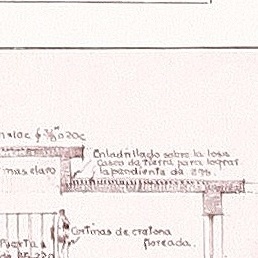 Enladrillado sobre la losa
Casco de tierra para lograr
la pendiente de 2%
mas claro
Cortinas de cratona
floreada.
Puertas